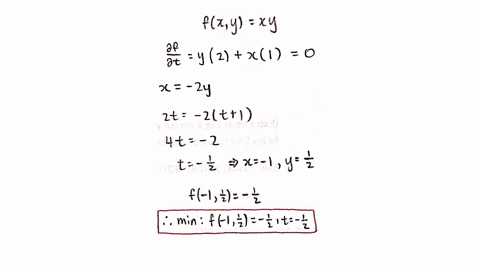 f(x,y) = xy
∂f/∂t = y(2) + x(1) = 0
x = -2y
2t = -2(t+1)
4t = -2
t = -1/2 ⇒ x=-1, y=1/2
f(-1, 1/2) = -1/2
∴ min: f(-1, 1/2) = -1/2, t=-1/2